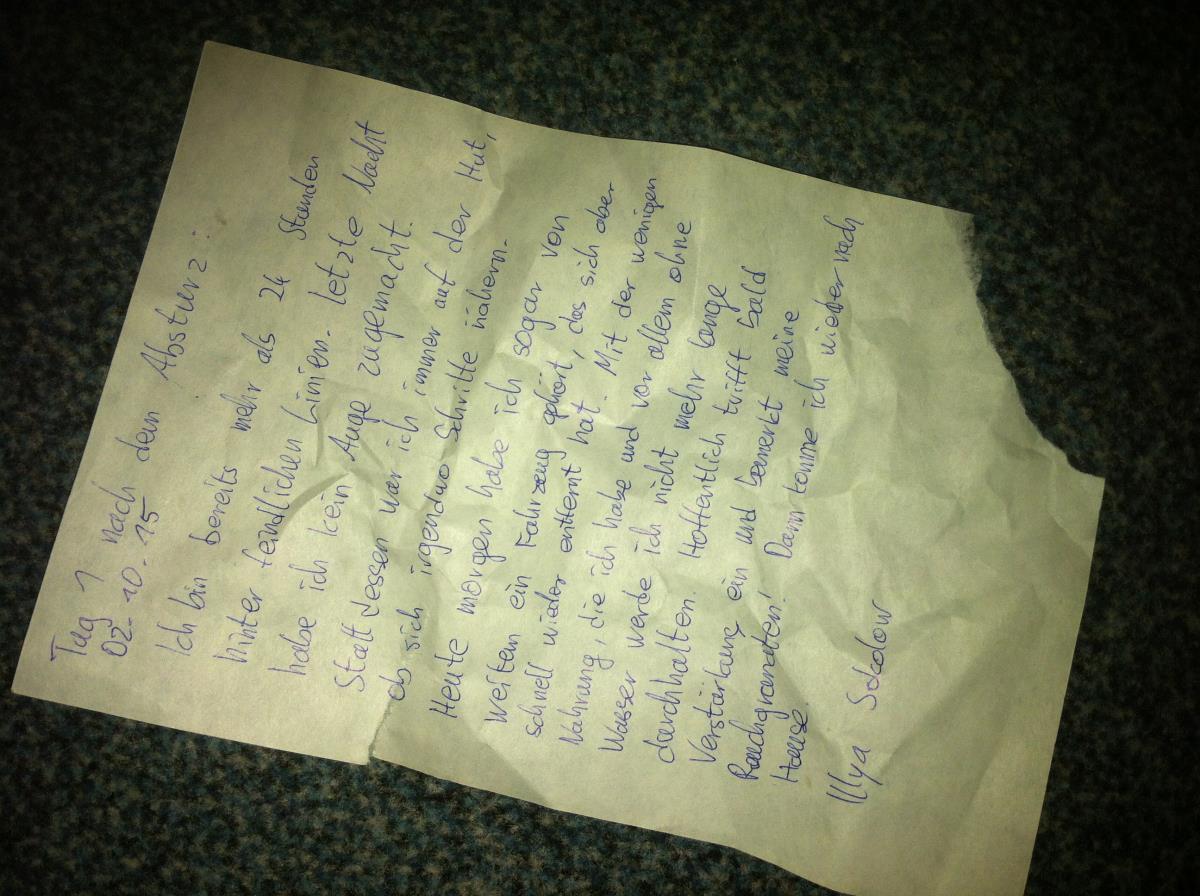 Tag 1 nach dem Absturz:
02.10.15
Ich bin bereits mehr als 24 Stunden
hinter feindlichen Linien. letzte Nacht
habe ich kein Auge zugemacht.
Statt dessen war ich immer auf der Hut,
ob sich irgendwo Schritte nähern.
Heute morgen habe ich sogar von
weitem ein Fahrzeug gehört, das sich aber
schnell wieder entfernt hat. Mit der wenigen
Nahrung, die ich habe und vor allem ohne
Wasser werde ich nicht mehr lange
durchhalten. Hoffentlich trifft bald
Verstärkung ein und bemerkt meine
Rauchgranaten! Dann komme ich wieder nach
Hause.
Illya Sokolow